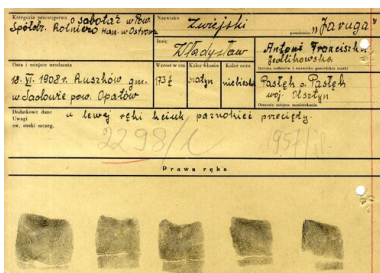 Kategoria przestępstwa o sabotaż w Pow.
Spółdz. Rolniczo Han. w Ostrow
Nazwisko Zwiejski
pseudonim „Jaruga"
Imię Władysław
Antoni Franciszka
Jedlikowska
Imiona rodziców i nazwisko panieńskie matki
Data i miejsce urodzenia
18. VI. 1908 r. Ruszków gm.
w Sadowie pow. Opatów
Wzrost w cm
173 ½
Kolor włosów
szatyn
Kolor oczu
niebieskie
Pasłęk p. Pasłęk
woj. Olsztyn
Ostatnie miejsce zamieszkania
Dodatkowe dane
Uwagi
u lewej ręki kciuk paznokieć przecięty.
2298/
1957
Prawa ręka